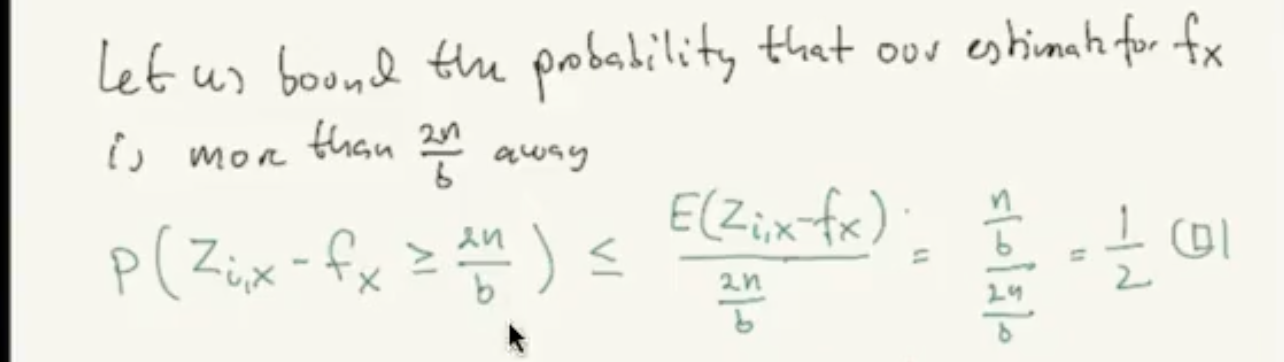 Let us bound the probability that our estimate for fx
is more than 2n/b away
P(Zi,x - fx ≥ 2n/b) ≤ E(Zi,x-fx) / (2n/b) = (n/b) / (2n/b) = 1/2